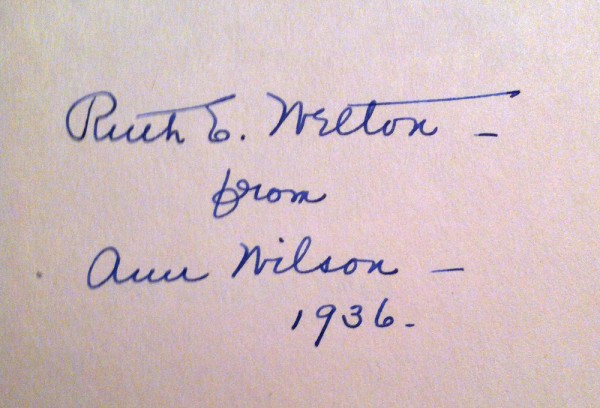 Ruth E. Welton –
from
Ann Wilson –
1936.